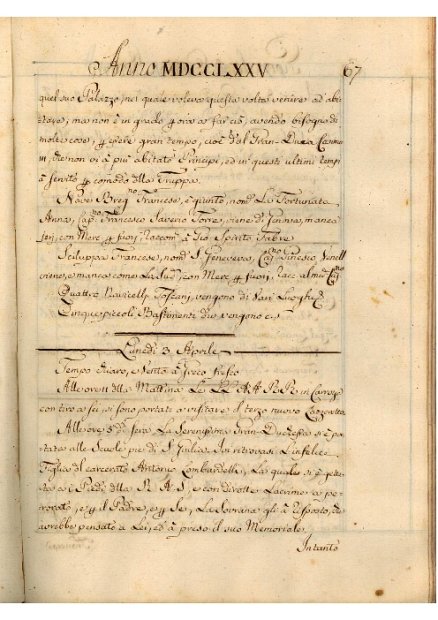 Anno MDCCLXXV 67
quel suo Palazzo, nel quale voleva questa volta venire ad abi-
tare, ma non è in grado p ora a far ciò, avendo bisogno di
molte cose, p essere gran tempo, cioè dal Gran-Duca Cosimo
III, che non vi à più abitato Principi, ed in questi ultimi tempi
à servito p comodo della Truppa.
Nave Breg. Francese, è giunto, nom. La Fortunata
Anna, Cap.no Francesco Saverio Torre, viene di manca
con Merc. p fuori, Raccom. a Gio Spirito Fabre
Scaluppa Francese, nom. S Genoveva,
viene, e manca come La Sud.a con Merc. p fuori, Racc. al med.
Quattro Navicelli Toscani, vengono di Vari Luoghi,
Cinque piccoli Bastimenti vengono c. s.
Lunedì 3 Aprile
Tempo chiaro, e Vento a Greco fresco
Alle ore 11 della Mattina Le LL. AA. RR. in Carrozza
con tiro a sei si sono portati a visitare il terzo nuovo Lazzeretto
Alle ore 5 di sera La Serenissima Gran-Duchessa si è por-
tata alle Scuole pie di S Giulia. Ivi trovasi L'infelice
Figlia del carcerato Antonio Lombardella, La quale si è getta-
ta a i Piedi della R. A. S., e con dirotte Lacrime à pe-
rorato, e p il Padre, e p Se, La Sovrana gli à risposto, che
avrebbe pensato a Lei, ed à preso il suo Memoriale.
Intanto